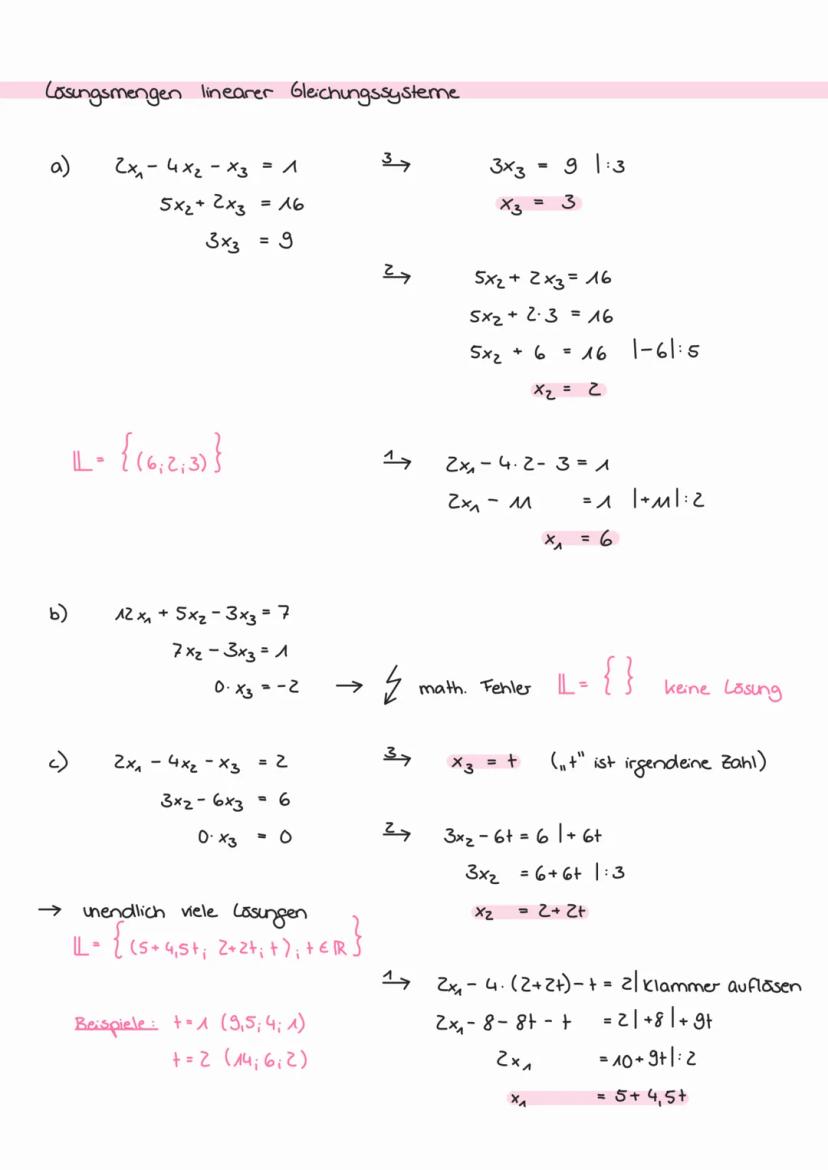 Lösungsmengen linearer Gleichungssysteme
a) 2x₁ - 4x₂ - x₃ = 1
5x₂ + 2x₃ = 16
3x₃ = 9
3→ 3x₃ = 9 |:3
x₃ = 3
2→ 5x₂ + 2x₃ = 16
5x₂ + 2·3 = 16
5x₂ + 6 = 16 |-6|:5
x₂ = 2
𝕃 = {(6;2;3)}
1→ 2x₁ - 4·2 - 3 = 1
2x₁ - 11 = 1 |+11|:2
x₁ = 6
b) 12x₁ + 5x₂ - 3x₃ = 7
7x₂ - 3x₃ = 1
0·x₃ = -2 → ↯ math. Fehler 𝕃 = { } keine Lösung
c) 2x₁ - 4x₂ - x₃ = 2
3x₂ - 6x₃ = 6
0·x₃ = 0
3→ x₃ = t („t" ist irgendeine Zahl)
2→ 3x₂ - 6t = 6 |+ 6t
3x₂ = 6 + 6t |:3
x₂ = 2 + 2t
→ unendlich viele Lösungen
𝕃 = {(5+4,5t; 2+2t; t); t ∈ ℝ}
Beispiele: t = 1 (9,5; 4; 1)
t = 2 (14; 6; 2)
1→ 2x₁ - 4·(2+2t) - t = 2 | Klammer auflösen
2x₁ - 8 - 8t - t = 2 |+8|+ 9t
2x₁ = 10 + 9t |:2
x₁ = 5 + 4,5t